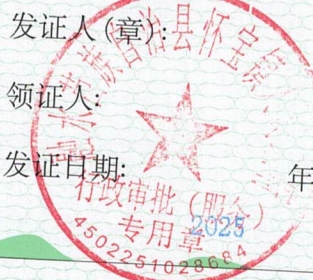 发证人(章):
领证人:
发证日期:
2025
年
融水苗族自治县怀宝镇
行政审批(服务)
专用章
4502251028684